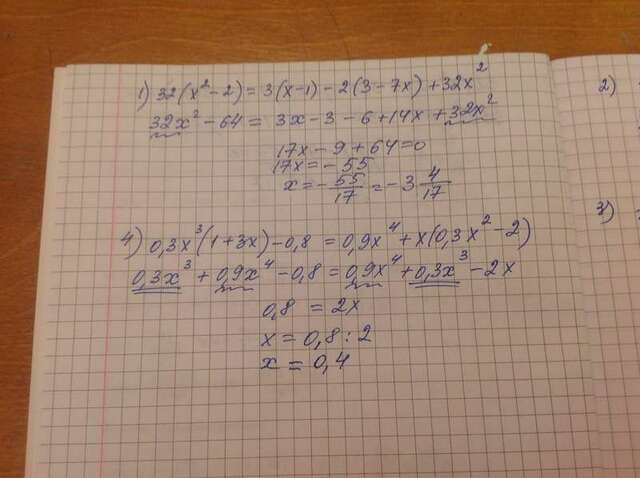 1) 32(x²-2) = 3(x-1) - 2(3-7x) + 32x²
32x² - 64 = 3x - 3 - 6 + 14x + 32x²
17x - 9 + 64 = 0
17x = - 55
x = - 55/17 = - 3 4/17
4) 0,3x³(1+3x) - 0,8 = 0,9x⁴ + x(0,3x²-2)
0,3x³ + 0,9x⁴ - 0,8 = 0,9x⁴ + 0,3x³ - 2x
0,8 = 2x
x = 0,8 : 2
x = 0,4
2)
3)